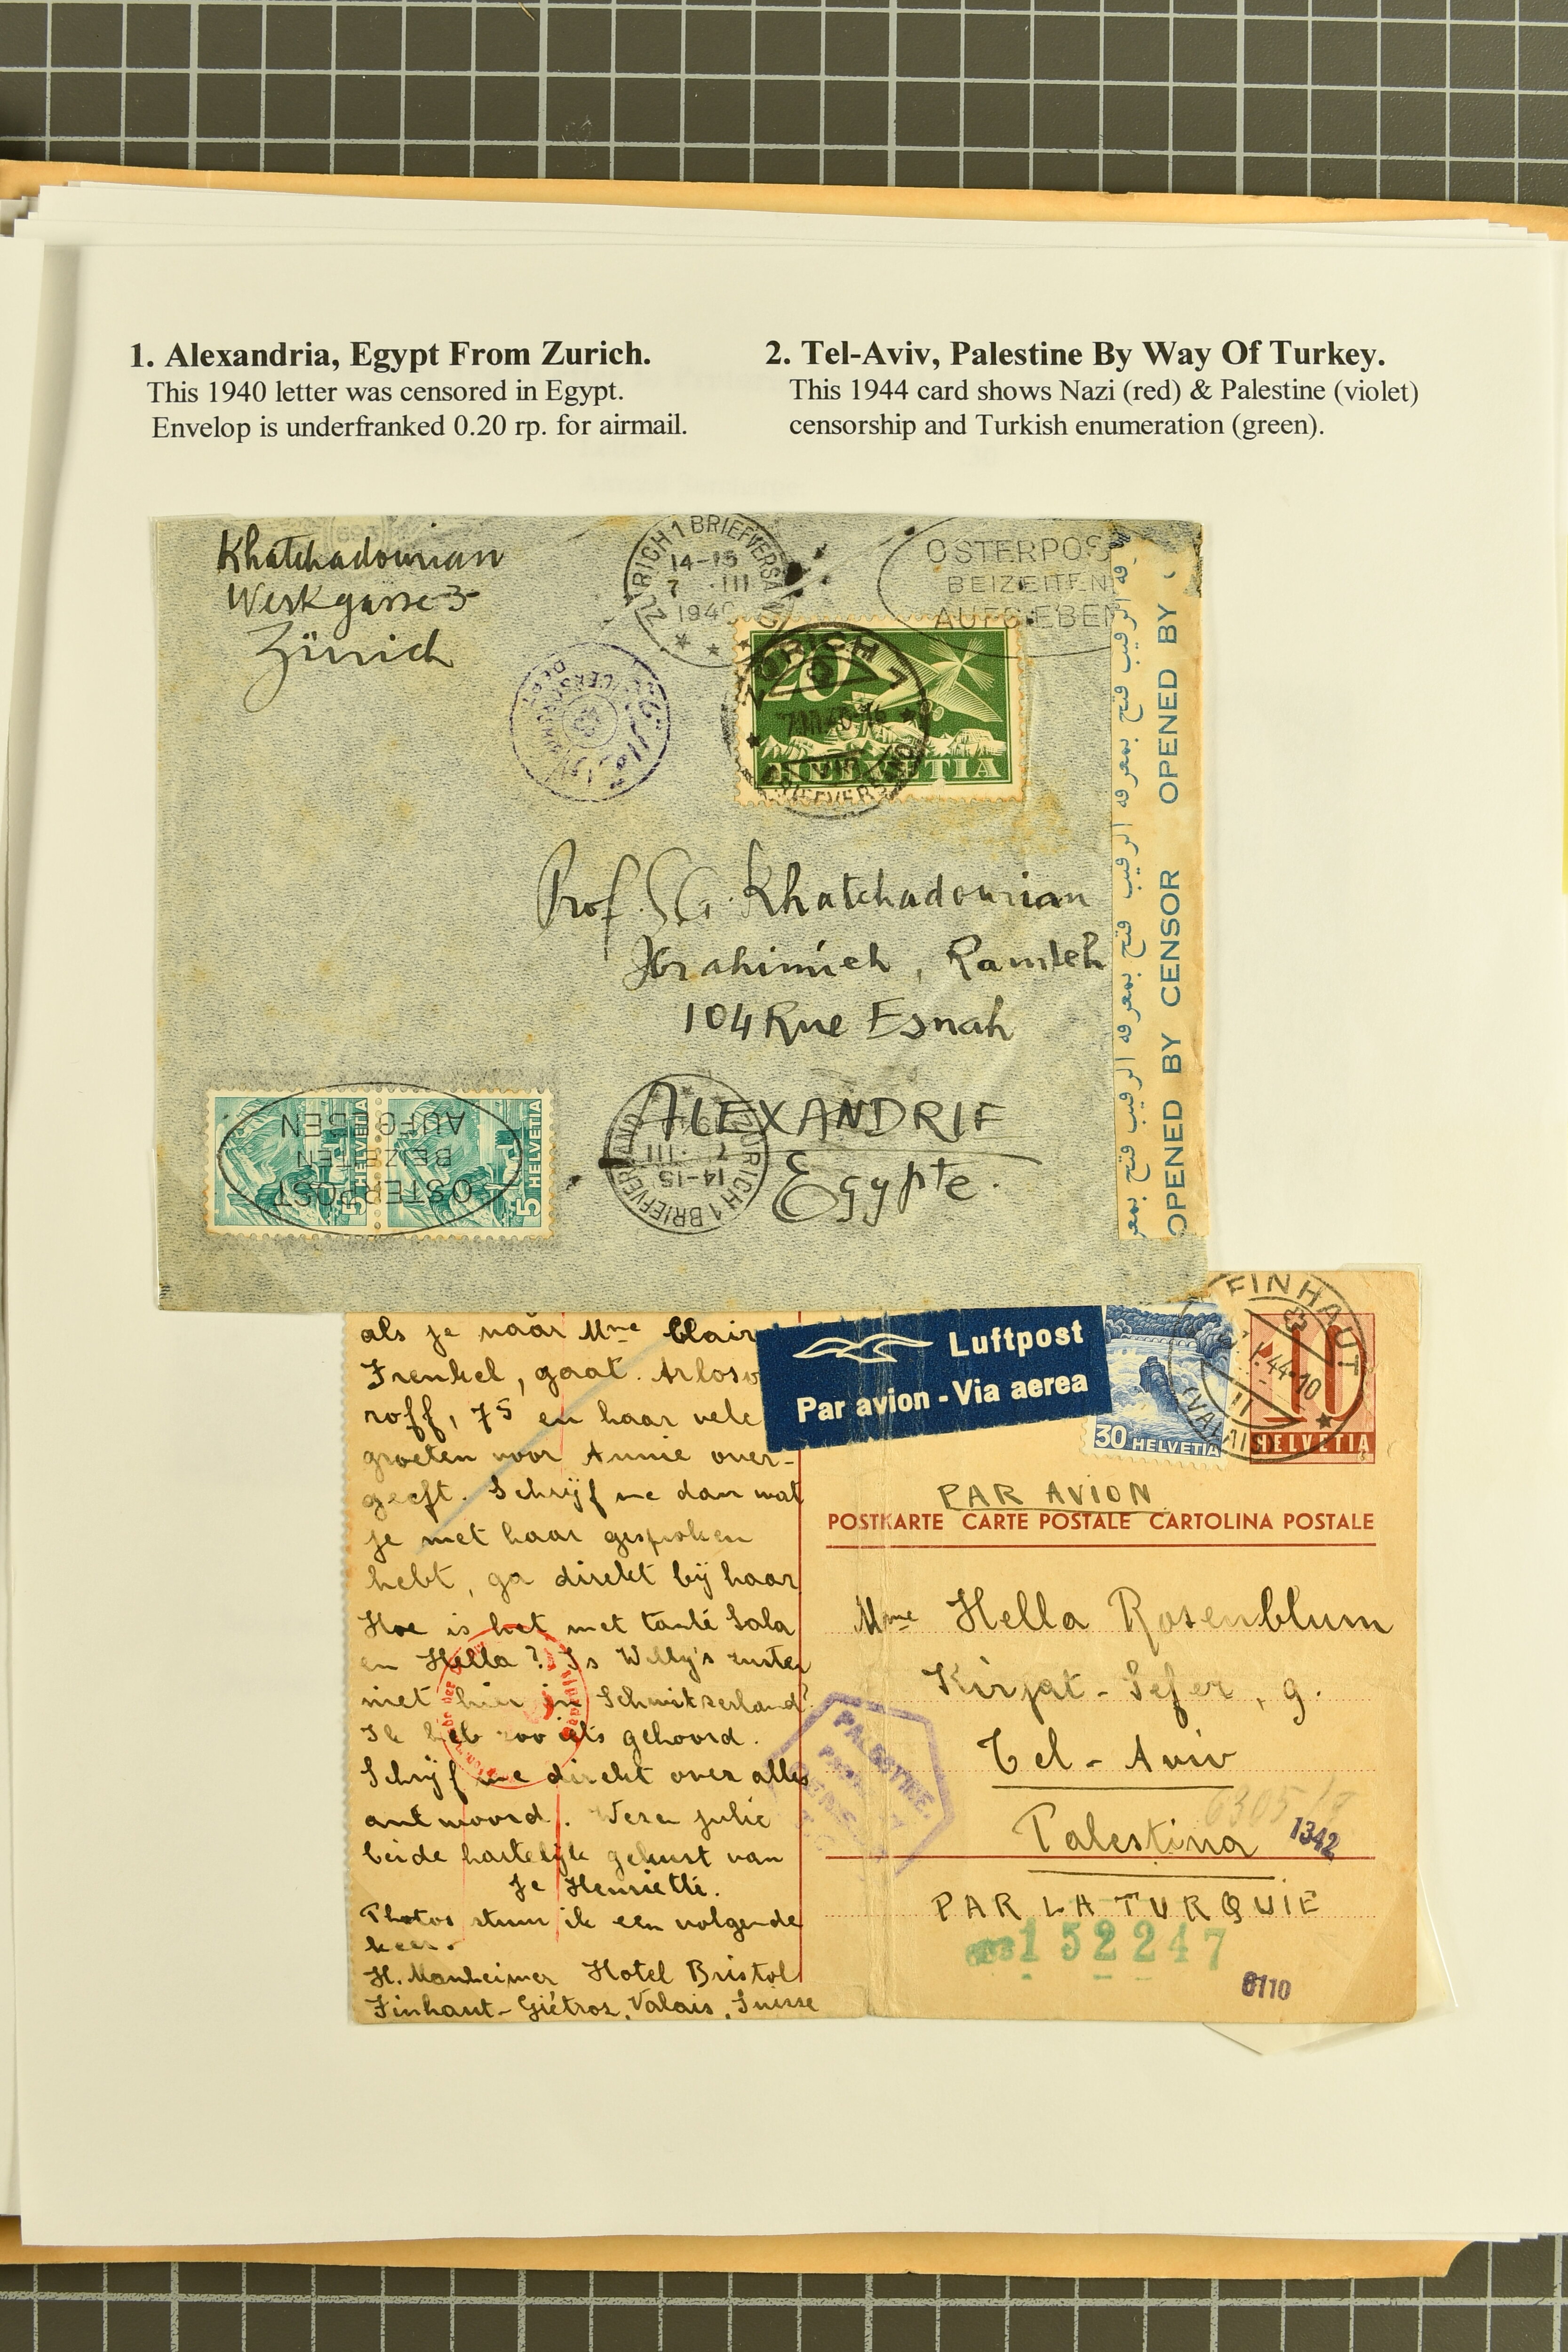 1. Alexandria, Egypt From Zurich.
This 1940 letter was censored in Egypt.
Envelop is underfranked 0.20 rp. for airmail.
2. Tel-Aviv, Palestine By Way Of Turkey.
This 1944 card shows Nazi (red) & Palestine (violet)
censorship and Turkish enumeration (green).
Khatchadourian
Werkgasse 3
Zürich
ZÜRICH 1 BRIEFVERSAND
14-15
7 ·III
1940
OSTERPOST
BEIZEITEN
AUFGEBEN
20
HELVETIA
ZÜRICH 1
BRIEFVERSAND
Prof. S.G. Khatchadourian
Ibrahimieh, Ramleh
104 Rue Esnah
ALEXANDRIE
Egypte.
OPENED BY CENSOR OPENED BY
فتح بمعرفه الرقيب فتح بمعرفه الرقيب فتح بمعرفه الرقيب
5 HELVETIA
5 HELVETIA
OSTERPOST
BEIZEITEN
AUFGEBEN
ZÜRICH 1 BRIEFVERSAND
14-15
7 ·III
als je naar Mme Clair
Frenkel, gaat. Arloso
roff, 75 en haar vele
groeten voor Annie over-
geeft. Schrijf me dan wat
je met haar gesproken
hebt, ga direkt bij haar
Hoe is het met tante Sala
en Hella? Is Willy's zuster
niet hier in Schwitzerland?
Ik heb zoo iets gehoord.
Schrijf me direkt over alles
antwoord. Wezen julie
beide hartelijk gekust van
Je Henriette.
Photos stuur ik een volgende
keer.
H. Manheimer Hotel Bristol
Finhaut-Giétroz, Valais, Suisse
Luftpost
Par avion - Via aerea
30 HELVETIA
FINHAUT
(VALAIS)
44-10
10
HELVETIA
PAR AVION
POSTKARTE CARTE POSTALE CARTOLINA POSTALE
Mme Hella Rosenblum
Kirjat-Sefer, 9.
Tel-Aviv
Palestina
6305/
1342
PALESTINE.
PAR LA TURQUIE
152247
0110